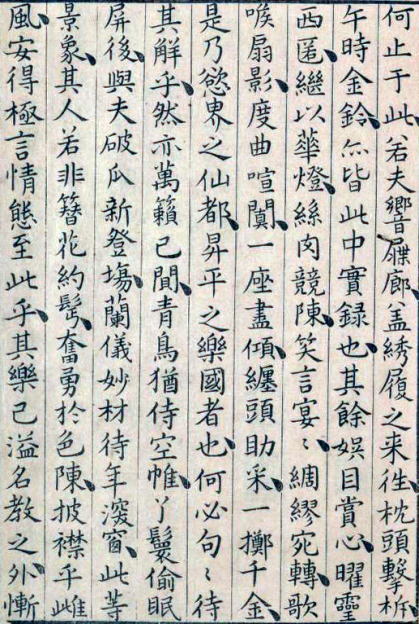 何止于此、若夫響屧廊、盖綉履之来徃、枕頭擊柝、
午時金鈴、亦皆此中實録也、其餘娯目賞心、曜靈
西匿、繼以華燈、絲肉競陳、笑言宴〻、綢繆宛轉、歌
喉扇影、度曲喧闐、一座盡傾、纏頭助采、一擲千金、
是乃慾界之仙都、昇平之樂國者也、何必句〻待
其解乎、然亦萬籟已聞、青鳥猶侍空帷、丫鬟偷眠
屏後、與夫破瓜新登塲、蘭儀妙材待年窗、此等
景象、其人若非簪花約髩、奮勇於色陳、披襟乎雌
風、安得極言情態至此乎、其樂已溢名教之外、慚